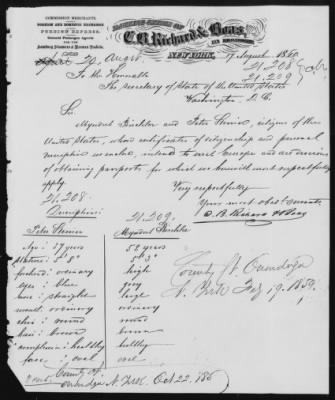 COMMISSION MERCHANTS
FOREIGN AND DOMESTIC EXCHANGE
FOREIGN EXPRESS.
BANKING OFFICE OF
C. B. Richard & Boas,
NEW YORK, 17 August 1860
20. August
21.208
21.209
To the Honorable
The Secretary of State of the United States
Washington, D. C.
Sir.
and Peter citizens of the
United States, whose certificates of citizenship and personal
we enclose, intend to visit Europe and are desirous
of obtaining passports for which we herewith most respectfully
apply.
Very respectfully
Your most obdt servants
C. B. Richard & Boas
21.208
21,209.
Peter
Age : 37 years
52 years
stature : 5' 8"
5' 3"
forehead : ordinary
high
eyes : blue
gray
nose : straight
large
mouth : ordinary
ordinary
chin : round
round
hair : brown
brown
complexion : healthy
healthy
face : oval
oval
County of Onondaga
N. York Feby 19. 1859.
County of
Onondaga N. York Oct 22. 185